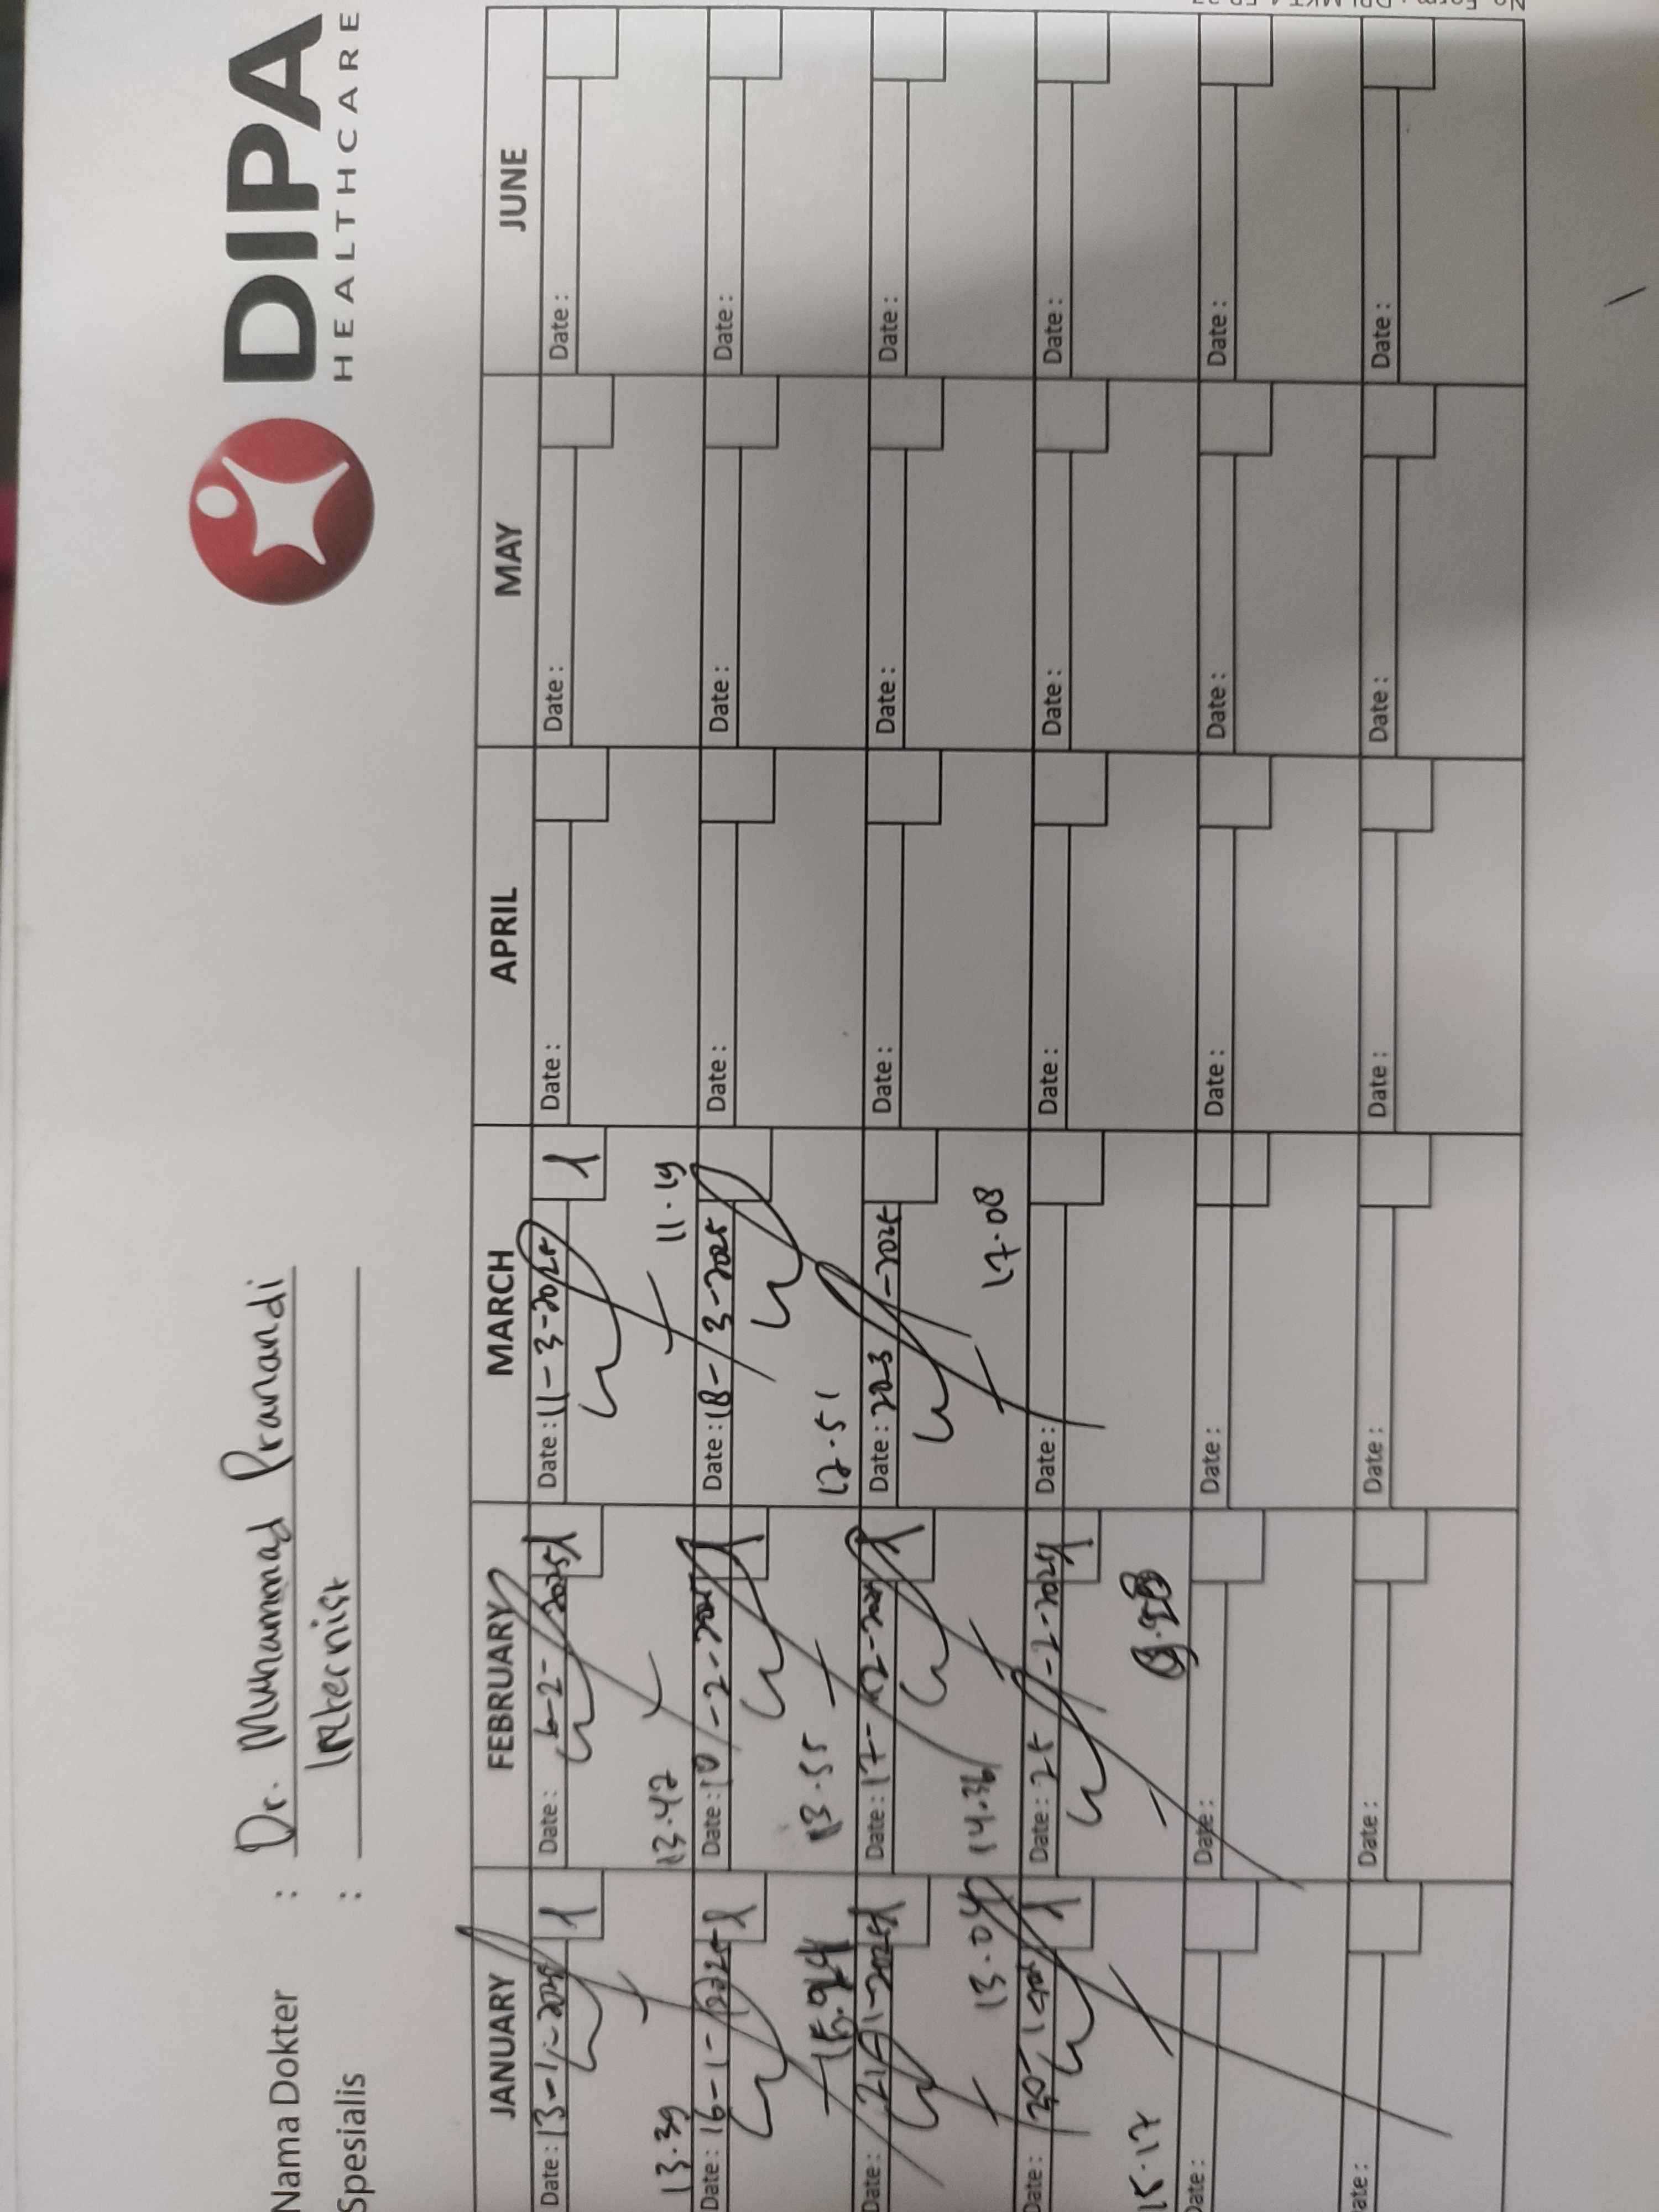 DIPA
HEALTHCARE
Nama Dokter : Dr. Muhammad Pranandi
Spesialis : Internist
JANUARY FEBRUARY MARCH APRIL MAY JUNE
Date : 13-1-2025 1 Date : 6-2-2025 1 Date : 11-3-2025 1 Date : Date : Date :
13.39 13.47 11.19
Date : 16-1-2025 1 Date : 10-2-2025 1 Date : 18-3-2025 Date : Date : Date :
13.55 12.51
Date : 21-1-2025 1 Date : 17-2-2025 1 Date : 20-3-2025 Date : Date : Date :
13.04 14.36 17.08
Date : 30-1-2025 1 Date : 25-2-2025 1 Date : Date : Date : Date :
15.17
Date : Date : Date : Date : Date : Date :
ate : Date : Date : Date : Date : Date :